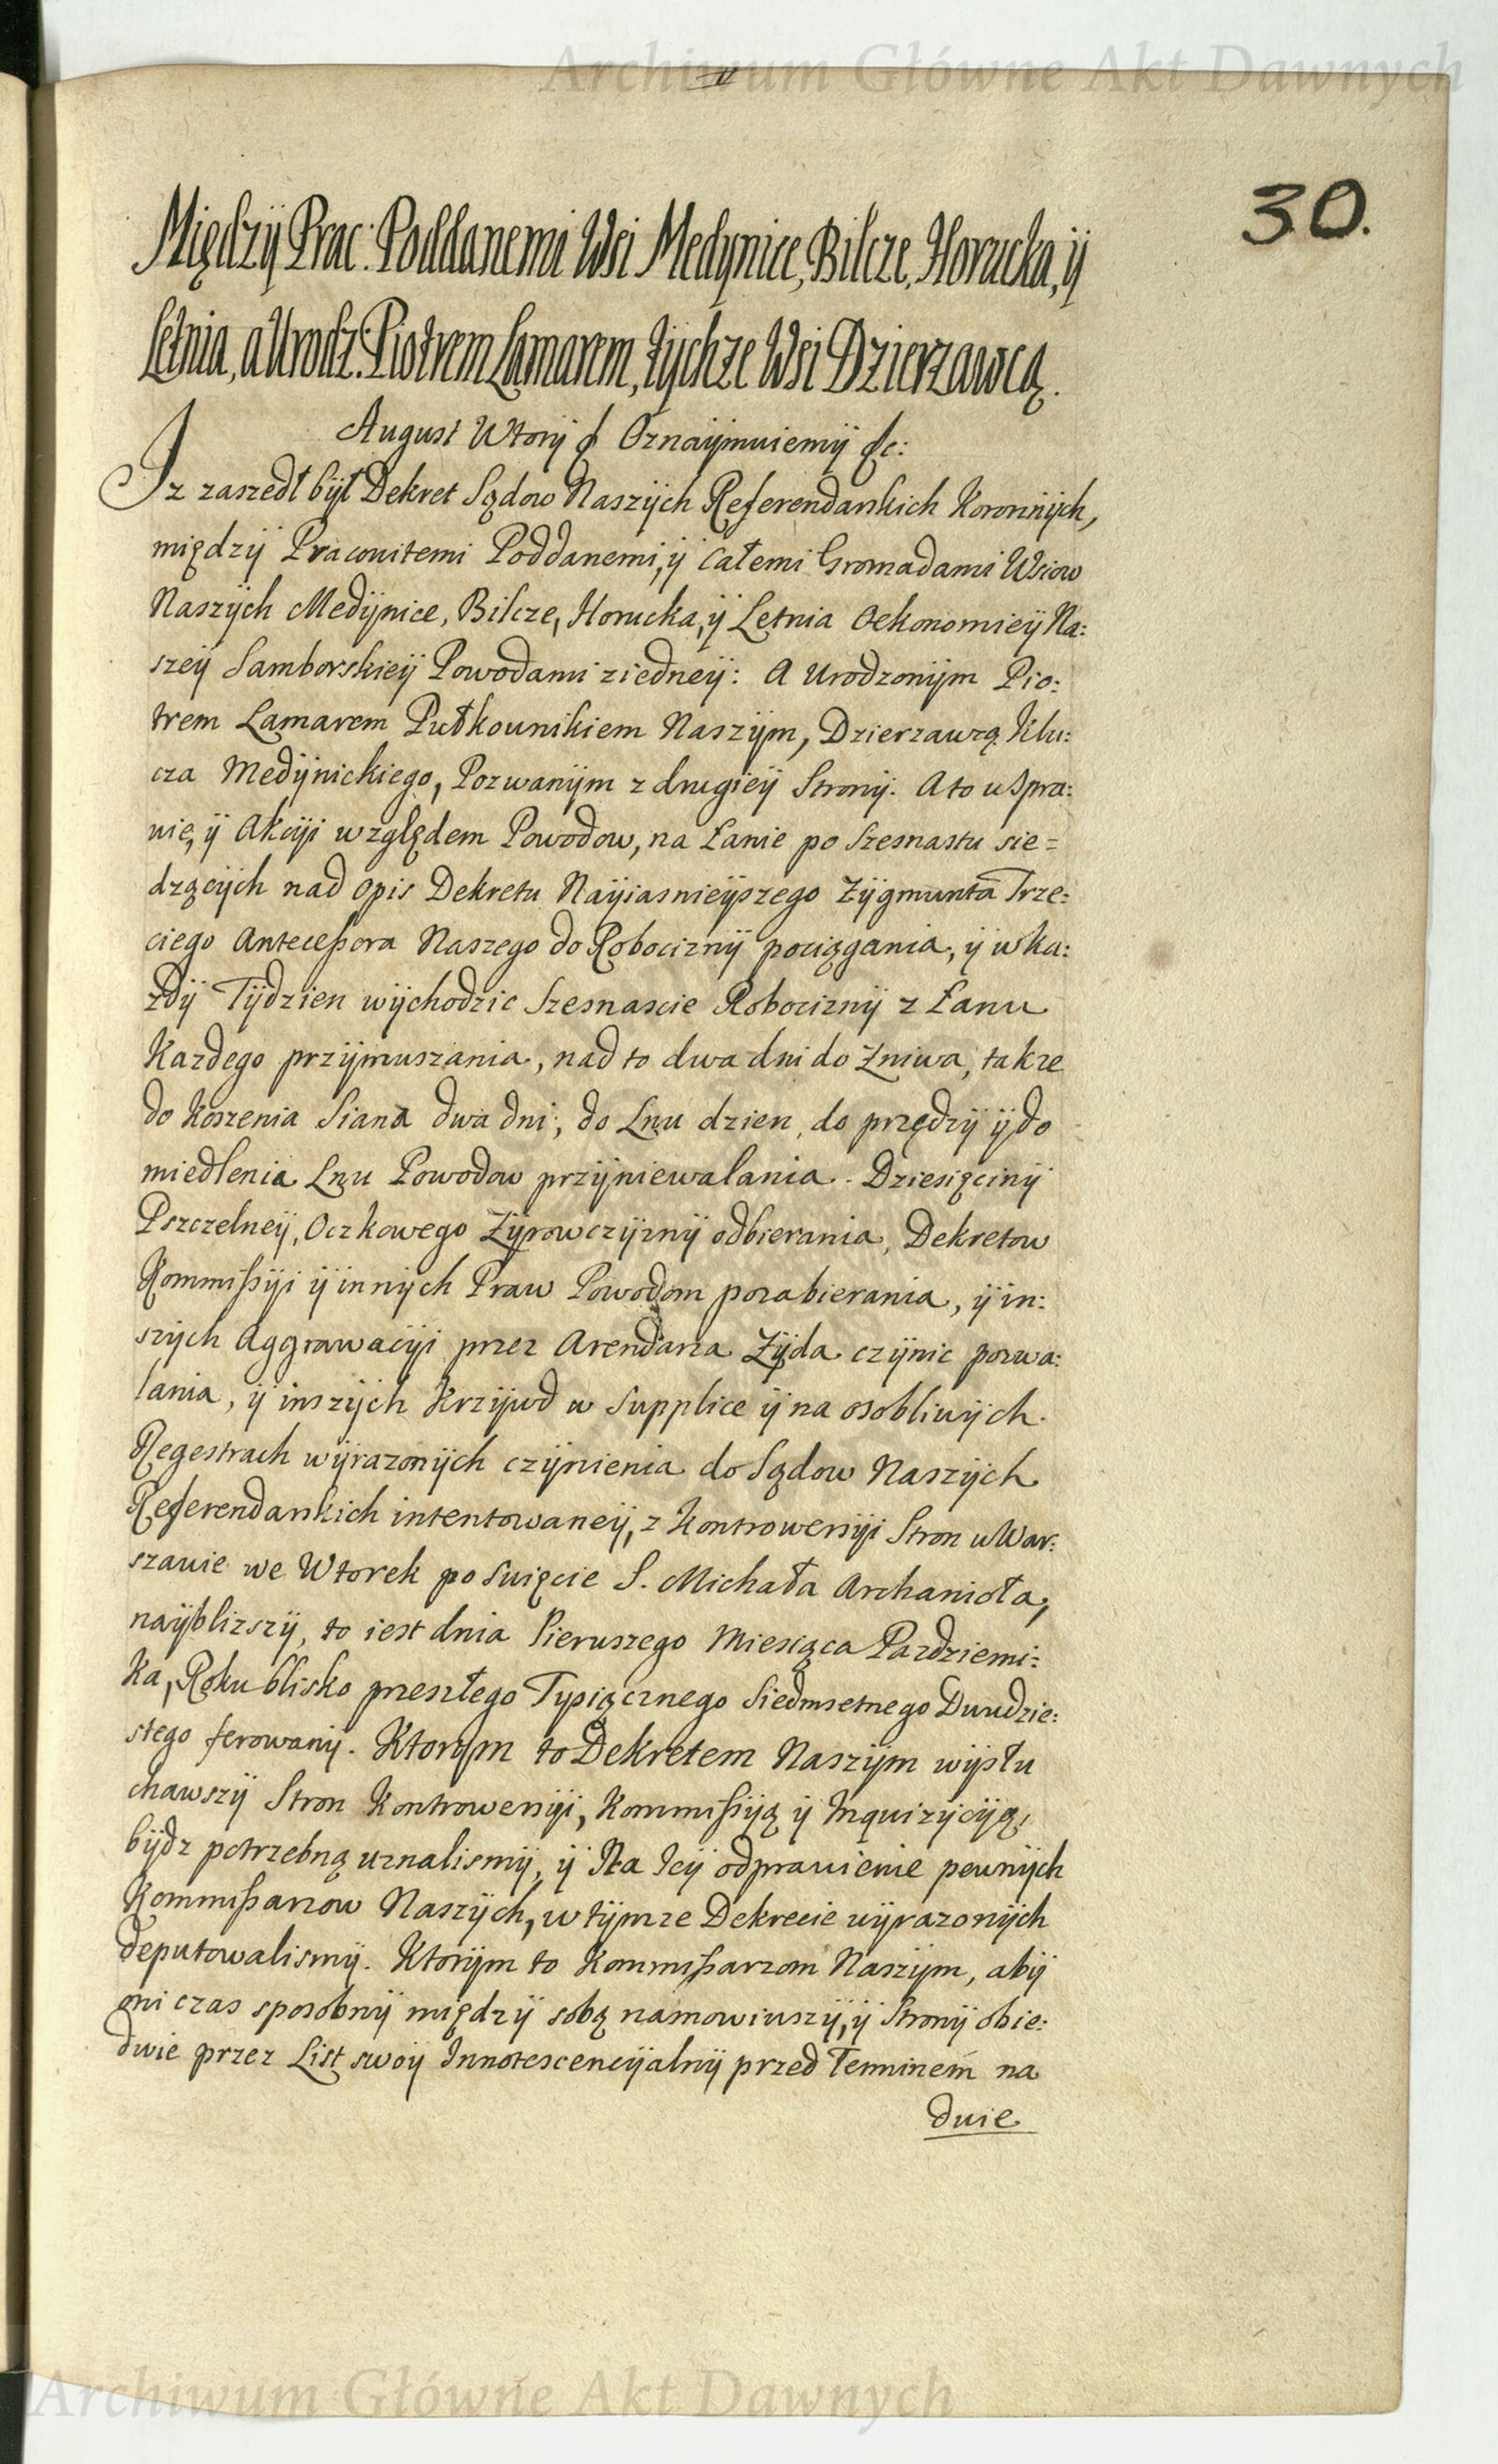 Archiwum Główne Akt Dawnych
30.
Między Prac: Poddanemi Wsi Medynice, Bilcze, Horucka, ÿ
Letnia, a Urodz: Piotrem Lamarem, tÿchze Wsi Dzierzawcą.
August Wtorÿ & Oznaÿmuiemÿ &c:
Iz zaszedł bÿł Dekret Sądow Naszÿch Referendarskich Koronnÿch,
międzÿ Pracowitemi Poddanemi, ÿ całemi Gromadami Wsiow
Naszÿch Medÿnice, Bilcze, Horucka, ÿ Letnia Oekonomieÿ Na:
szeÿ Samborskieÿ Powodami ziedneÿ: A Urodzonÿm Pio:
trem Lamarem Pułkownikiem Naszÿm, Dzierzawcą Klu:
cza Medÿnickiego, Pozwanÿm z drugieÿ Stronÿ. A to w Spra:
wie, ÿ Akcÿi względem Powodow, na Łanie po Szesnastu sie=
dzącÿch nad opis Dekretu Naÿiasnieÿszego Zÿgmunta Trze:
ciego Antecessora Naszego do Robociznÿ pociągania, ÿ w ka:
zdÿ Tÿdzien wÿchodzic Szesnascie Robociznÿ z Łanu
Kazdego przÿmuszania, nad to dwa dni do Zniwa, takze
do Koszenia Siana dwa dni, do Lnu dzien, do przędzÿ ÿ do
miedlenia Lnu Powodow przÿniewalania. Dziesięcinÿ
Pszczelneÿ, Oczkowego Zÿrowczÿznÿ odbierania, Dekretow
Kommissÿi ÿ innÿch Praw Powodom pozabierania, ÿ in:
szÿch Aggrawacÿi przez Arendarza Zÿda czÿnic pozwa:
lania, ÿ inszÿch Krzÿwd w Supplice ÿ na osobliwÿch
Regestrach wÿrazonÿch czÿnienia do Sądow Naszÿch
Referendarskich intentowaneÿ, z Kontrowersÿi Stron w War:
szawie we Wtorek po Swięcie S. Michała Archanioła,
naÿblizszÿ, to iest dnia Pierwszego Miesiąca Pazdzierni:
ka, Roku blisko przeszłego Tysiącznego Siedmsetnego Dwudzie:
stego ferowanÿ. Ktorÿm to Dekretem Naszÿm wÿsłu
chawszÿ Stron Kontrowersÿi, Kommissÿą ÿ Inquizÿcÿą,
bÿdz potrzebną uznalismÿ, ÿ Na Ieÿ odprawienie pewnÿch
Kommissarzow Naszÿch, w tÿmze Dekrecie wÿrazonÿch
deputowalismÿ. Ktorÿm to Kommissarzom Naszÿm, abÿ
oni czas sposobnÿ międzÿ sobą namowiwszÿ, ÿ Stronÿ obie:
dwie przez List swoÿ Innotescencÿalnÿ przed Terminem na
dwie
Archiwum Główne Akt Dawnych